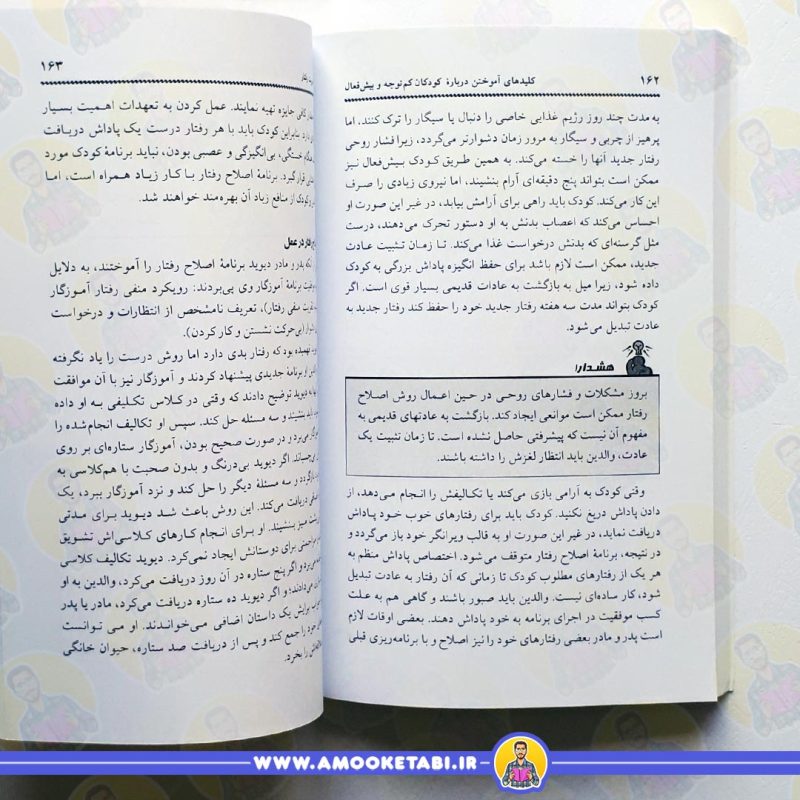 ۱۶۲
کلیدهای آموختن دربارهٔ کودکان کم‌توجه و بیش‌فعال
به مدت چند روز رژیم غذایی خاصی را دنبال یا سیگار را ترک کنند، اما
پرهیز از چربی و سیگار به مرور زمان دشوارتر می‌گردد، زیرا فشار روحی
رفتار جدید آنها را خسته می‌کند. به همین طریق کودک بیش‌فعال نیز
ممکن است بتواند پنج دقیقه‌ای آرام بنشیند، اما نیروی زیادی را صرف
این کار می‌کند. کودک باید راهی برای آرامش بیابد، در غیر این صورت او
احساس می‌کند که اعصاب بدنش به او دستور تحرک می‌دهند، درست
مثل گرسنه‌ای که بدنش درخواست غذا می‌کند. تا زمان تثبیت عادت
جدید، ممکن است لازم باشد برای حفظ انگیزه پاداش بزرگی به کودک
داده شود، زیرا میل به بازگشت به عادات قدیمی بسیار قوی است. اگر
کودک بتواند مدت سه هفته رفتار جدید خود را حفظ کند رفتار جدید به
عادت تبدیل می‌شود.
هشدار!
بروز مشکلات و فشارهای روحی در حین اعمال روش اصلاح
رفتار ممکن است موانعی ایجاد کند. بازگشت به عادتهای قدیمی به
مفهوم آن نیست که پیشرفتی حاصل نشده است. تا زمان تثبیت یک
عادت، والدین باید انتظار لغزش را داشته باشند.
وقتی کودک به آرامی بازی می‌کند یا تکالیفش را انجام می‌دهد، از
دادن پاداش دریغ نکنید. کودک باید برای رفتارهای خوب خود پاداش
دریافت نماید، در غیر این صورت او به قالب ویرانگر خود باز می‌گردد و
در نتیجه، برنامهٔ اصلاح رفتار متوقف می‌شود. اختصاص پاداش منظم به
هر یک از رفتارهای مطلوب کودک تا زمانی که آن رفتار به عادت تبدیل
شود، کار ساده‌ای نیست. والدین باید صبور باشند و گاهی هم به علت
کسب موفقیت در اجرای برنامه به خود پاداش دهند. بعضی اوقات لازم
است پدر و مادر بعضی رفتارهای خود را نیز اصلاح و با برنامه‌ریزی قبلی
۱۶۳
کافی جایزه تهیه نمایند. عمل کردن به تعهدات اهمیت بسیار
کودک باید با هر رفتار درست یک پاداش دریافت
خستگی، بی‌انگیزگی و عصبی بودن، نباید برنامهٔ کودک مورد
قرار گیرد. برنامهٔ اصلاح رفتار با کار زیاد همراه است، اما
کودک از منافع زیاد آن بهره‌مند خواهند شد.
در عمل
پدر و مادر دیوید برنامهٔ اصلاح رفتار را آموختند، به دلایل
برنامهٔ آموزگار وی پی‌بردند: رویکرد منفی رفتار آموزگار
منفی رفتار)، تعریف نامشخص از انتظارات و درخواست
(بی‌حرکت نشستن و کار کردن).
فهمیده بود که رفتار بدی دارد اما روش درست را یاد نگرفته
او برنامهٔ جدیدی پیشنهاد کردند و آموزگار نیز با آن موافقت
به دیوید توضیح دادند که وقتی در کلاس تکلیفی به او داده
باید بنشیند و سه مسئله حل کند. سپس او تکالیف انجام‌شده را
و در صورت صحیح بودن، آموزگار ستاره‌ای بر روی
اگر دیوید بی‌درنگ و بدون صحبت با هم‌کلاسی به
و سه مسئلهٔ دیگر را حل کند و نزد آموزگار ببرد، یک
دریافت می‌کند. این روش باعث شد دیوید برای مدتی
میز بنشیند. او برای انجام کارهای کلاسی‌اش تشویق
برای دوستانش ایجاد نمی‌کرد. دیوید تکالیف کلاسی
و اگر پنج ستاره در آن روز دریافت می‌کرد، والدین به او
می‌دادند؛ و اگر دیوید ده ستاره دریافت می‌کرد، مادر یا پدر
برایش یک داستان اضافی می‌خواندند. او می توانست
خود را جمع کند و پس از دریافت صد ستاره، حیوان خانگی
بخرد.
WWW.AMOOKETABI.IR